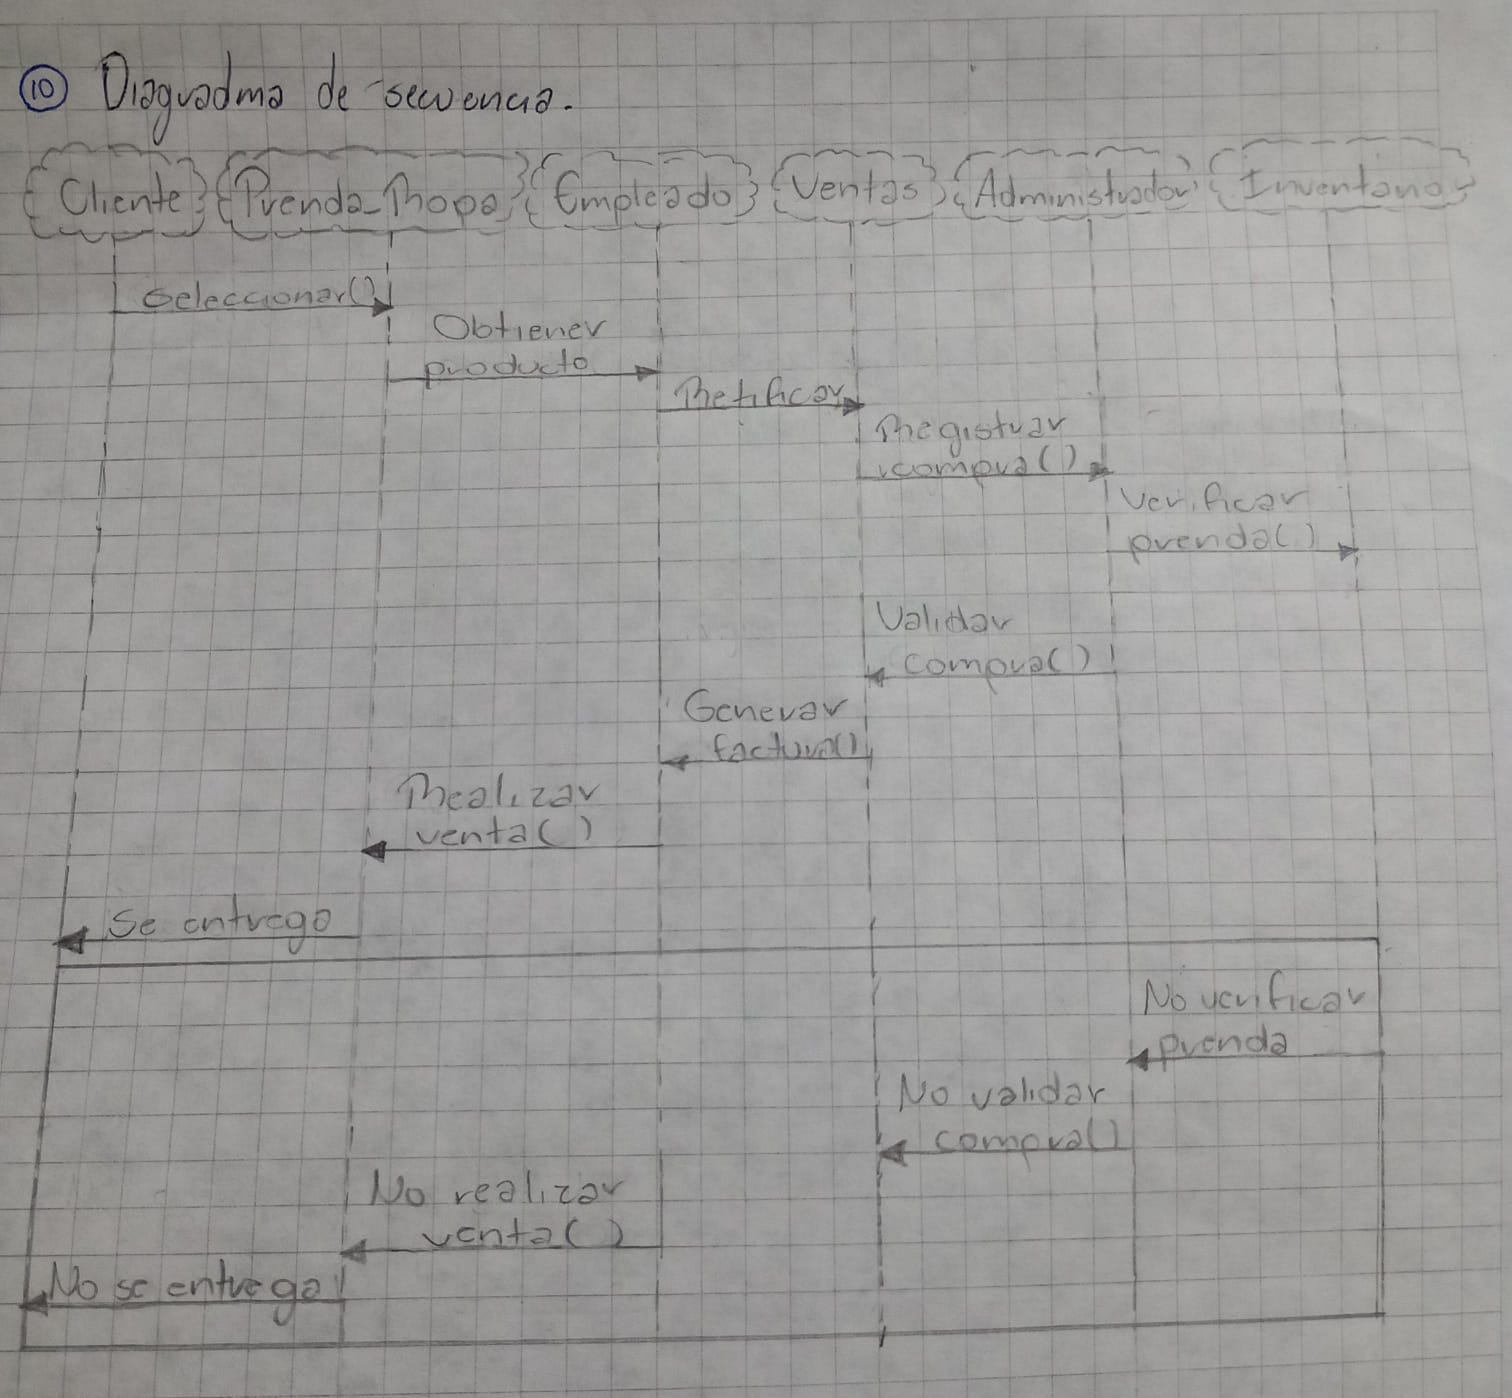 10 Diagradma de secuencia.
Cliente Prenda_Ropa Empleado Ventas Administrador Inventario
Seleccionar()
Obtiener
producto
Retificar
Registrar
compra()
Verificar
prenda()
Validar
compra()
Generar
factura()
Realizar
venta()
Se entrego
No verificar
prenda
No validar
compra()
No realizar
venta()
No se entrega